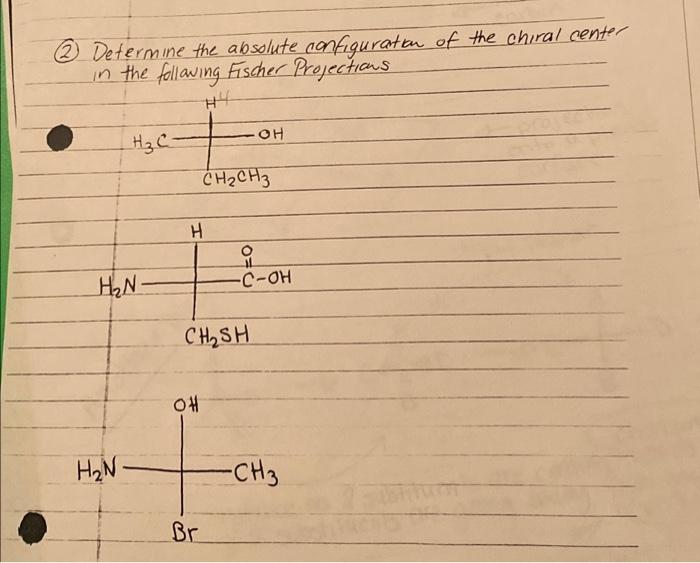 ② Determine the absolute configuration of the chiral center
in the following Fischer Projections
H4
H₃C OH
CH₂CH₃
H
O
H₂N C-OH
CH₂SH
OH
H₂N CH₃
Br